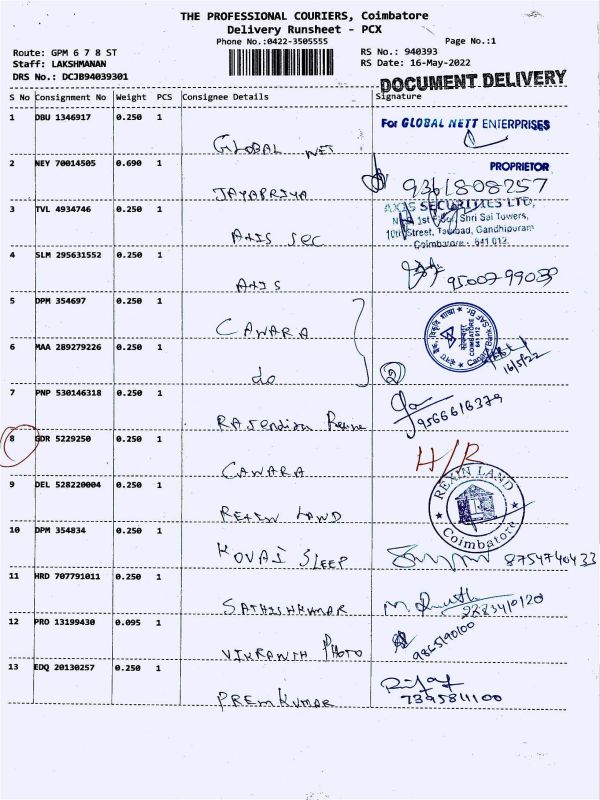 THE PROFESSIONAL COURIERS, Coimbatore
Delivery Runsheet - PCX
Phone No.:0422-3505555
Page No.:1
Route: GPM 6 7 8 ST
RS No.: 940393
Staff: LAKSHMANAN
RS Date: 16-May-2022
DRS No.: DCJB94039301
DOCUMENT DELIVERY
S No Consignment No Weight PCS Consignee Details Signature
1 DBU 1346917 0.250 1
GLOBAL NET
For GLOBAL NETT ENTERPRISES
PROPRIETOR
2 NEY 70014505 0.690 1
JAYAPRIYA
9361808257
3 TVL 4934746 0.250 1
AXIS SEC
AXIS SECURITIES LTD,
1st Shri Sai Towers,
10th Street, Tatabad, Gandhipuram
Coimbatore - 641 012.
4 SLM 295631552 0.250 1
AXIS
9500799030
5 DPM 354697 0.250 1
CANARA
COIMBATORE
641 012
Canara Bank
6 MAA 289279226 0.250 1
do
2
16/5/22
7 PNP 530146318 0.250 1
RAJendira
9566616379
8 GDR 5229250 0.250 1
CANARA
H/R
9 DEL 528220004 0.250 1
REXIN LAND
REXIN LAND
Coimbatore
10 DPM 354834 0.250 1
KOVAI SLEEP
8754740433
11 HRD 707791011 0.250 1
SATHISHKUMAR
12 PRO 13199430 0.095 1
VIKRANTH PHOTO
9865190100
13 EDQ 20130257 0.250 1
PREMKUMAR
7395841100